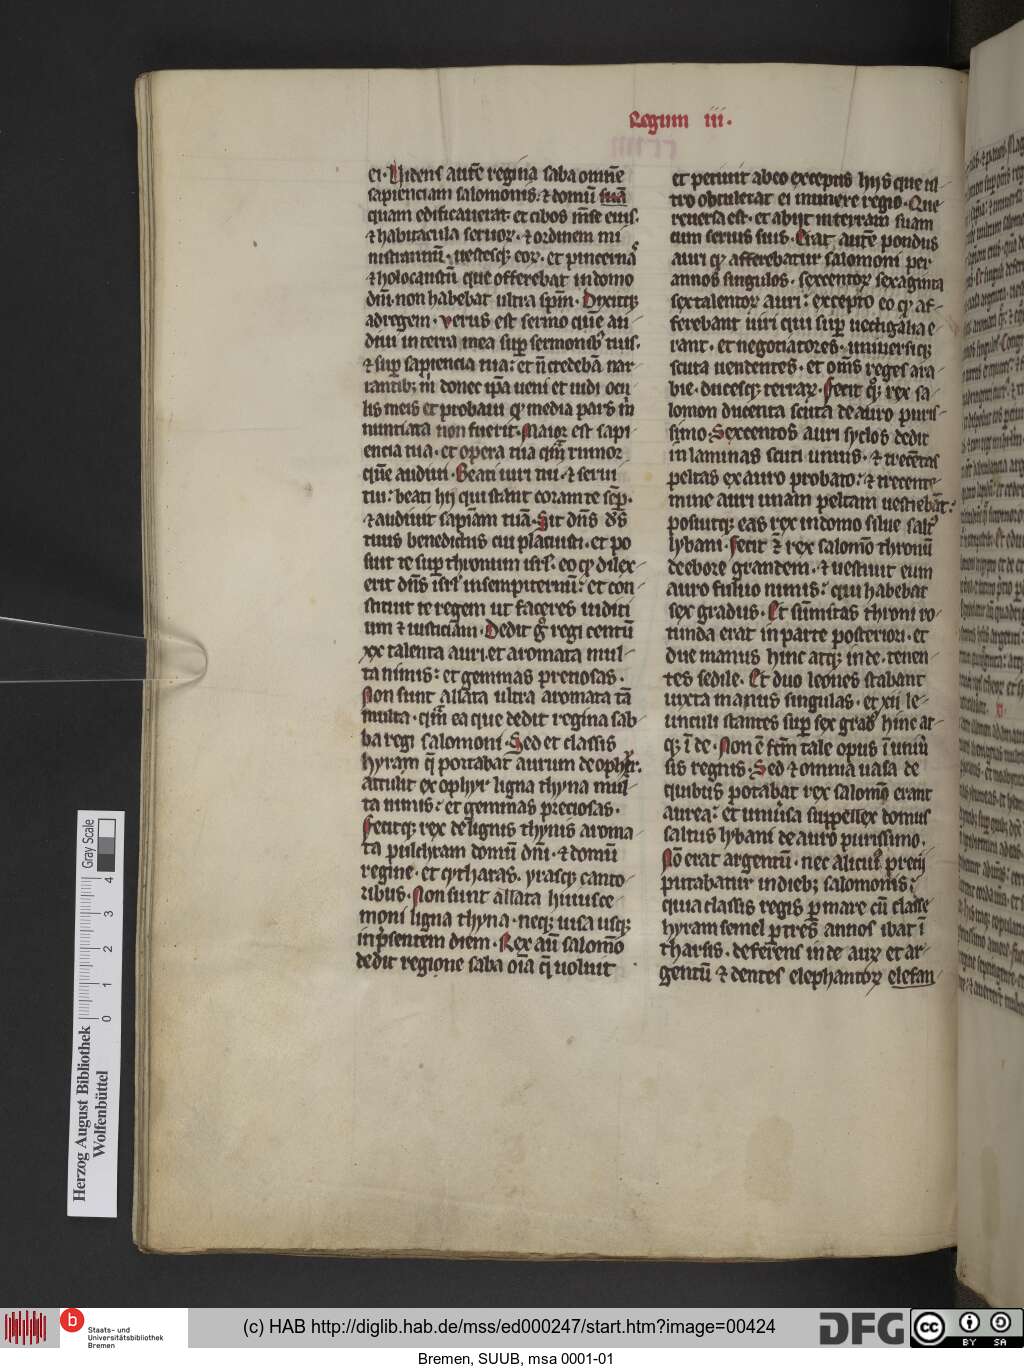 Regum iii.
ei. Videns autē regina saba omnē
sapienciam salomonis. ⁊ domū suā
quam edificauerat. et cibos mēse eius.
⁊ habitacula seruoꝝ. ⁊ ordinem mi
nistrantiū. uestesqꝫ eoꝝ. et pincernas
⁊ holocaustū que offerebat in domo
dn̄i. non habebat ultra spm̄. Dixitqꝫ
ad regem. verus est sermo quē au
diui in terra mea suꝑ sermonibꝫ tuis.
⁊ suꝑ sapiencia tua: et n̄ credebā nar
rantibꝫ m̄ donec ip̄a ueni et uidi ocu
lis meis et probaui qꝫ media pars m̄
nuntiata non fuerit. Maior est sapi
encia tua. et opera tua qm̄ rumor
quē audiui. Beati uiri tui. ⁊ serui
tui: beati hij qui stant coram te semꝑ.
⁊ audiunt sapīam tuā. Sit dn̄s ds̄
tuus benedictus cui placuisti. et po
suit te suꝑ thronum isrl̄. eo qꝫ dilex
erit dn̄s isrl̄ in sempiternū: et con
stituit te regem ut faceres iudici
um ⁊ iusticiam. Dedit g̊ regi centū
xx talenta auri. et aromata mul
ta nimis: et gemmas preciosas.
Non sunt allata ultra aromata tā
multa. qm̄ ea que dedit regina sab
ba regi salomoni. Sed et classis
hyram q̄ portabat aurum de ophyr.
attulit ex ophyr ligna thyna mul
ta nimis: et gemmas preciosas.
Fecitqꝫ rex de lignis thynis aroma
ta pulchram domū dn̄i. ⁊ domū
regine. et cytharas. yrasqꝫ canto
ribus. Non sunt allata huiusce
moni ligna thyna. neqꝫ uisa usqꝫ
in p̄sentem diem. Rex aut̄ salomō
dedit regine saba oīa q̄ uoluit
et petiuit ab eo exceptis hijs que ul
tro obtulerat ei munere regio. Que
reuersa est. et abijt in terram suam
cum seruis suis. Erat autē pondus
auri qꝫ afferebatur salomoni per
annos singulos. sexcentoꝝ sexaginta
sex talentoꝝ auri: excepto eo qꝫ af
ferebant uiri qui suꝑ uectigalia e
rant. et negotiatores. uniuersiqꝫ
scuta uendentes. et om̄s reges ara
bie. ducesqꝫ terraꝝ. Fecit qꝫ rex sa
lomon ducenta scuta de auro puris
simo. Sexcentos auri syclos dedit
in laminas scuti unius. ⁊ trecētas
peltas ex auro probato: ⁊ trecente
mine auri unam peltam uestiebāt.
posuitqꝫ eas rex in domo silue salt⁹
lybani. Fecit ⁊̄ rex salomō thronū
de ebore grandem. ⁊ uestiuit eum
auro fuluo nimis: qui habebat
sex gradus. Et sūmitas throni ro
tunda erat in parte posteriori. et
due manus hinc atqꝫ inde. tenen
tes sedile. Et duo leones stabant
iuxta manus singulas. et xii le
unculi stantes suꝑ sex grad⁹ hinc at
qꝫ īde. Non ē fcm̄ tale opus ī uniū
sis regnis. Sed ⁊ omnia uasa de
quibus potabat rex salomō erant
aurea: et uniūsa suppellex domus
saltus lybani de auro purissimo.
Nō erat argentū. nec alicui⁹ precij
putabatur in diebꝫ salomonis:
quia classis regis ꝑ mare cū classe
hyram semel ꝑ tres annos ibat ī
tharsis. deferens inde auꝝ et ar
gentū ⁊ dentes elephantoꝝ elefan
Gray Scale
4
3
2
1
0
Herzog August Bibliothek
Wolfenbüttel
b
Staats- und
Universitätsbibliothek
Bremen
(c) HAB http://diglib.hab.de/mss/ed000247/start.htm?image=00424
DFG
cc BY SA
Bremen, SUUB, msa 0001-01